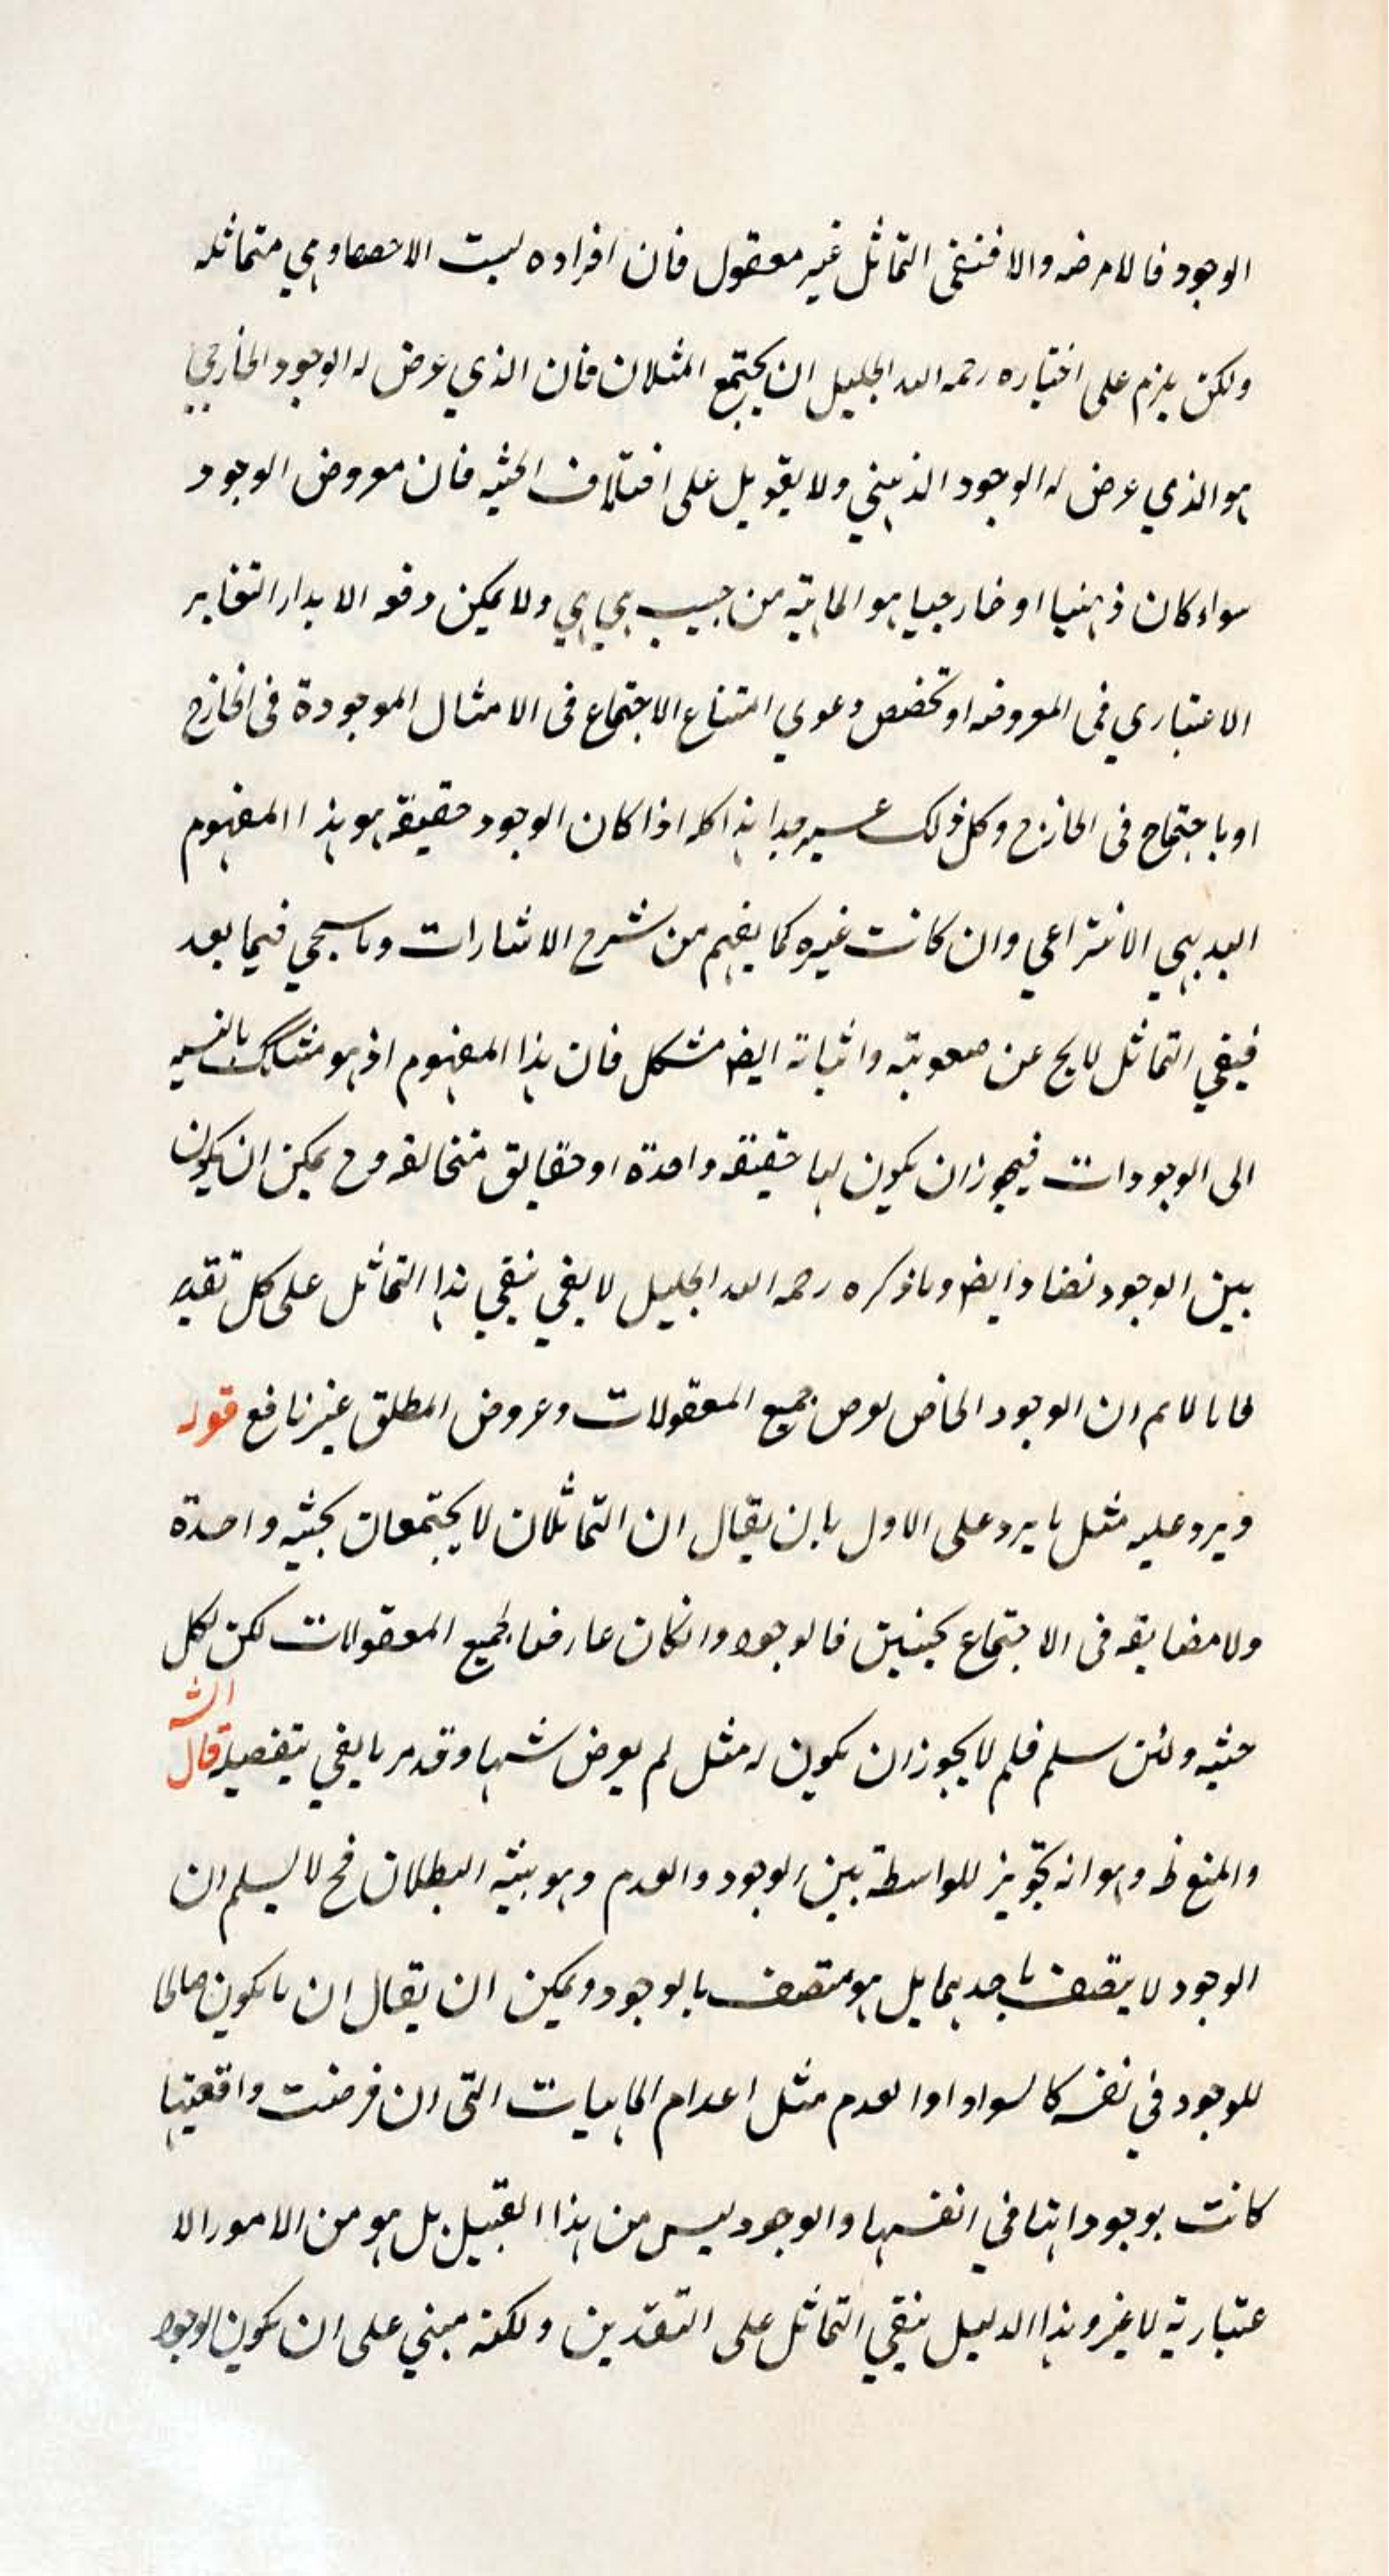 الوجود فالامر ضه والا فنفى التماثل غير معقول فان افراده ليست الا حصصا وهي متماثله
ولكن يلزم على اختياره رحمه الله الجليل ان يجتمع المثلان فان الذي عرض له الوجود الخارجي
هو الذي عرض له الوجود الذهني ولا يقويل على اختلاف الحيثيه فان معروض الوجود
سواء كان ذهنيا او خارجيا هو الماهية من حيث هي هي ولا يمكن دفعه الا بدار التغاير
الاعتباري في المعروضه او تخصص دعوى امتناع الاجتماع في الامثال الموجودة في الخارج
او باجتماع في الخارج وكل ذلك عسير جدا هذا كله اذا كان الوجود حقيقة هو هذا المفهوم
البديهي الانتزاعي وان كانت غيره كما يفهم من شرح الاشارات وما سيجي فيما بعد
فنفي التماثل لايخ عن صعوبته واثباته ايض مشكل فان هذا المفهوم اذ هو مشكك بالنسبه
الى الوجودات فيجوز ان يكون لها حقيقه واحدة او حقايق متخالفه وح يمكن ان يكون
بين الوجود تضاد وايض وما ذكره رحمه الله الجليل لا يفي بنفي هذا التماثل على كل تقدير
لانا لا نم ان الوجود الخاص يعرض جميع المعقولات وعروض المطلق غير نافع قوله
ويرد عليه مثل ما يرد على الاول بان يقال ان التماثلان لا يجتمعان بحيثيه واحدة
ولا مضايقه في الاجتماع بحيثيتين فالوجود وان كان عارضا لجميع المعقولات لكن لكل
حيثيه ولئن سلم فلم لا يجوز ان يكون له مثل لم يعرض شيها وقد مر ما يفي بتفصيله قال الش
والمنع ظ وهو انه تجويز للواسطة بين الوجود والعدم وهو بينه البطلان فح لا يسلم ان
الوجود لا يتصف باحدهما بل هو متصف بالوجود ويمكن ان يقال ان ما يكون صالحا
للوجود في نفسه كالسواد او العدم مثل اعدام الماهيات التي ان فرضت واقعيتها
كانت بوجوداتها في انفسها والوجود ليس من هذا القبيل بل هو من الامور الا
عتبارية لا غير وهذا الدليل ينفي التماثل على التقدين ولكنه مبني على ان يكون الوجود